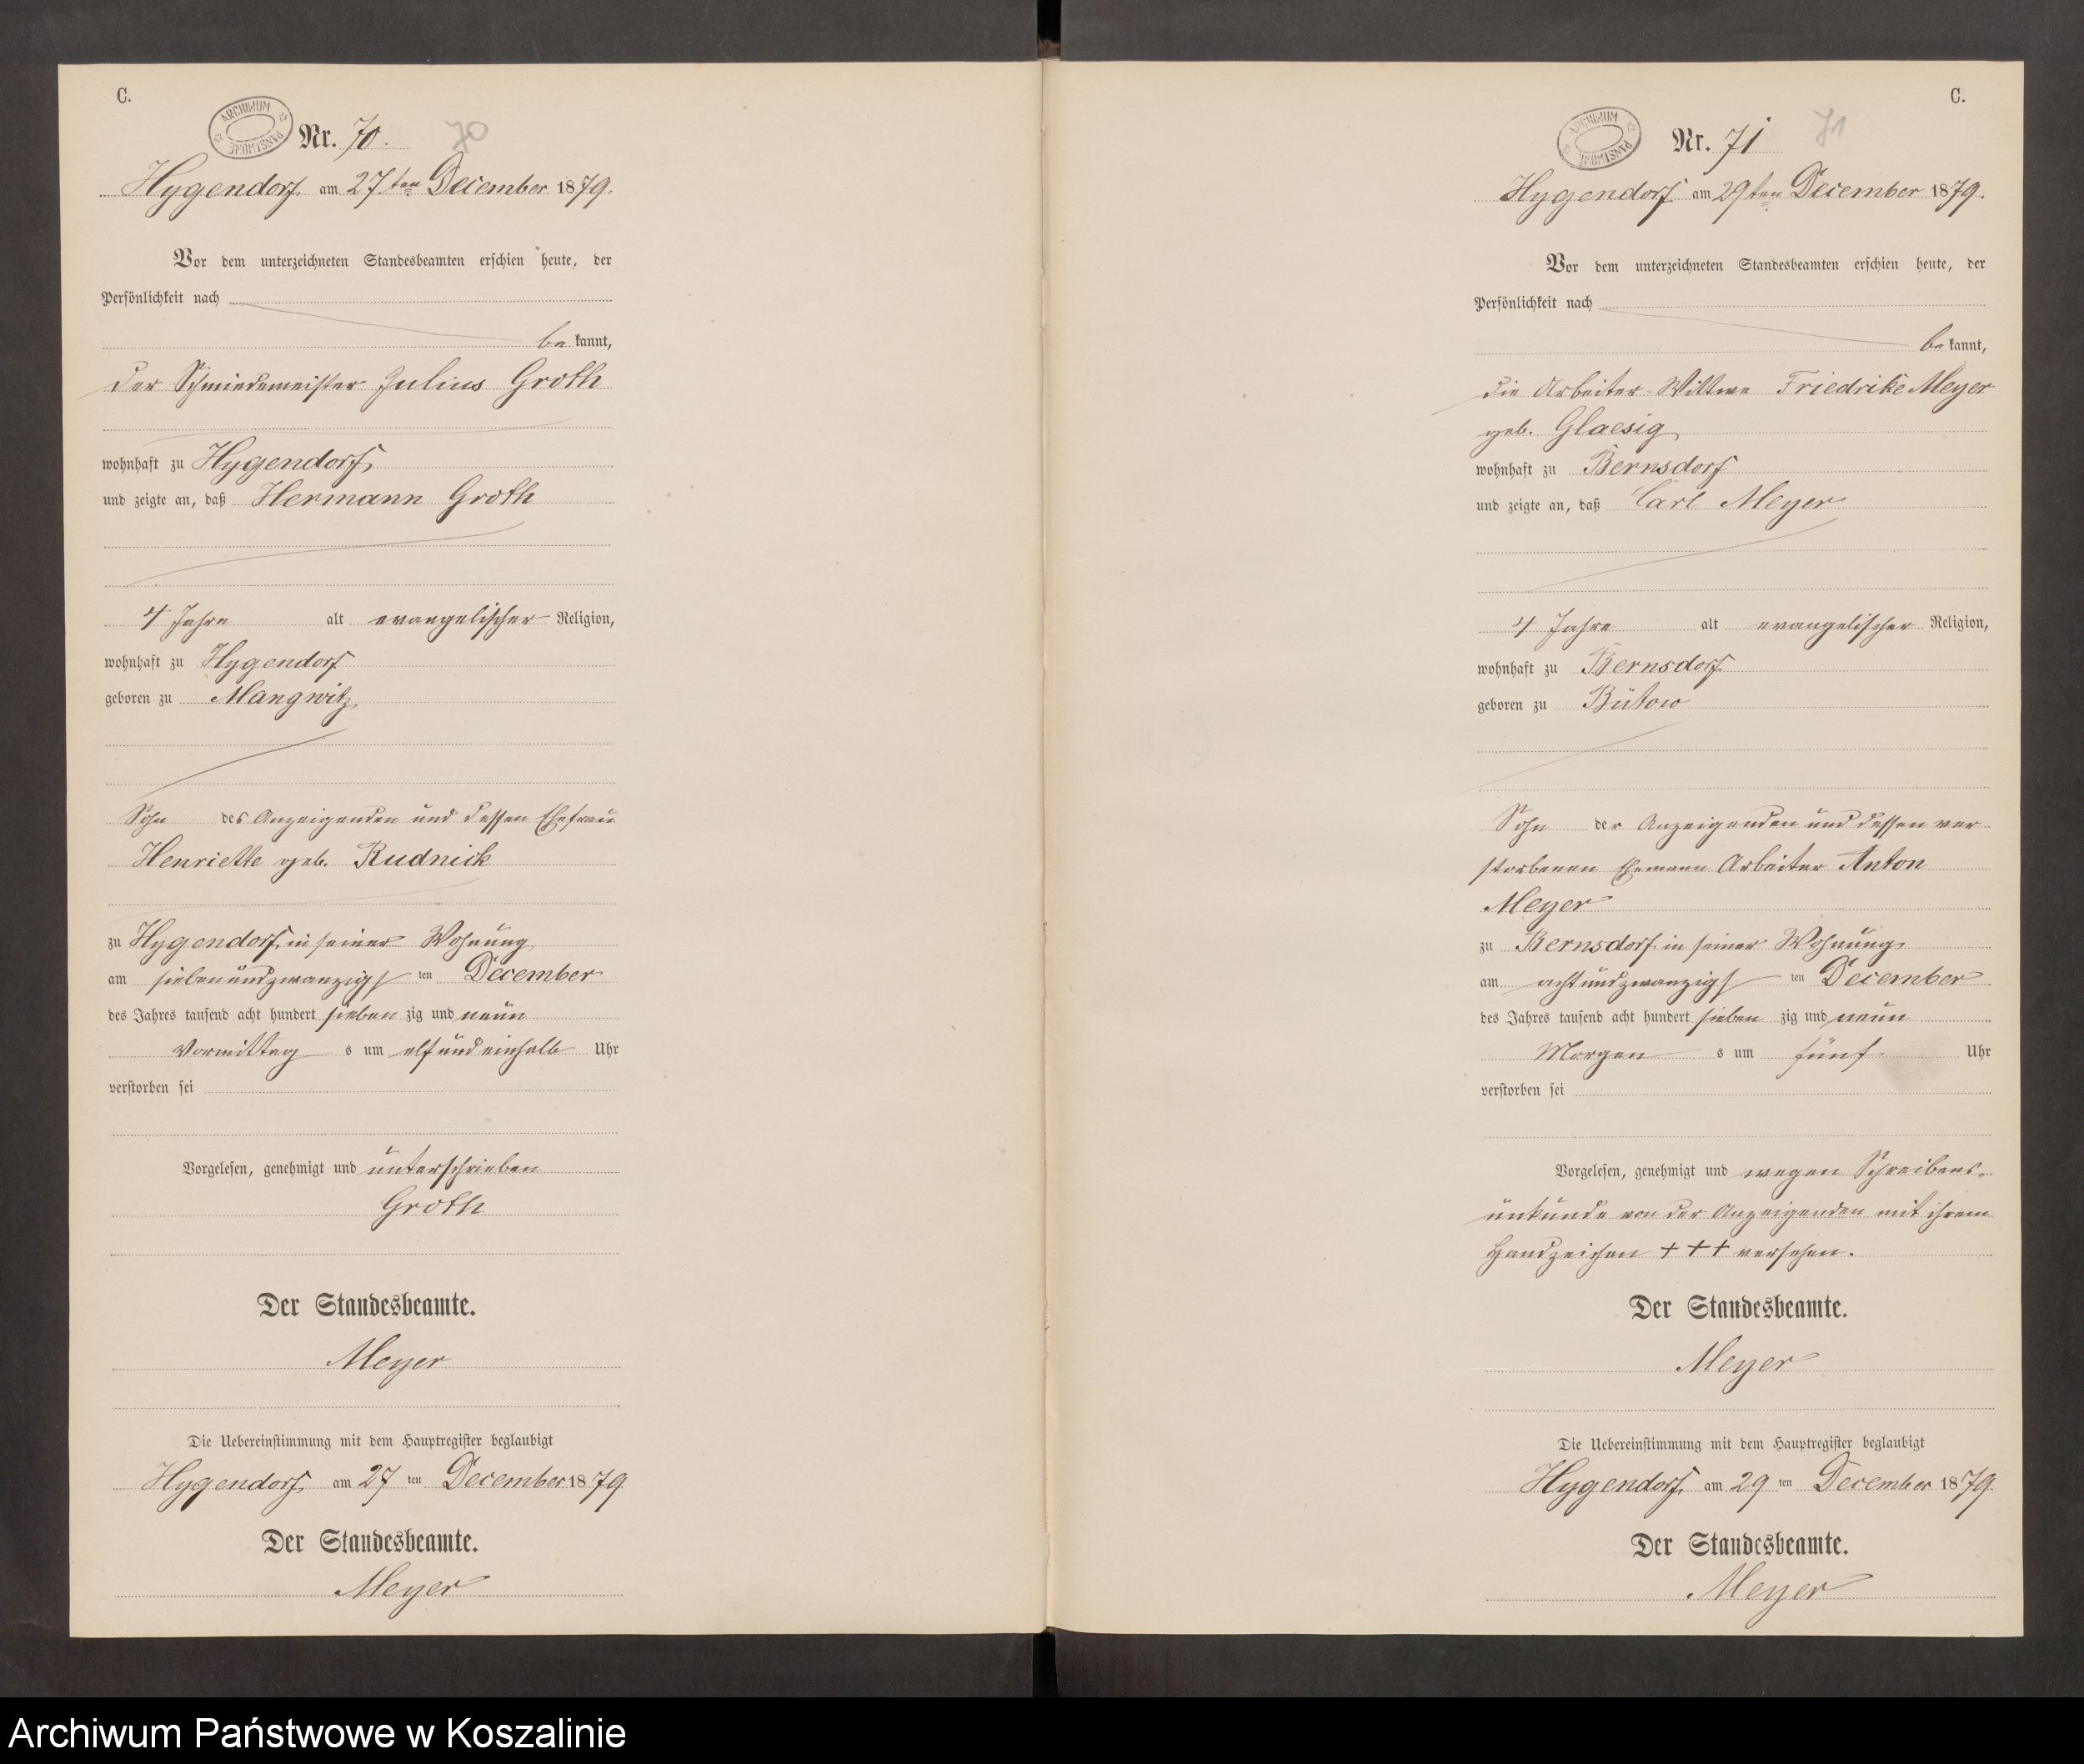 C.
ARCHIWUM PAŃSTWOWE
Nr. 70. 70
Hygendorf am 27ten December 1879.
Vor dem unterzeichneten Standesbeamten erschien heute, der
Persönlichkeit nach
be kannt,
der Schmiedemeister Julius Groth
wohnhaft zu Hygendorf,
und zeigte an, daß Hermann Groth
4 Jahre alt evangelischer Religion,
wohnhaft zu Hygendorf
geboren zu Mangwitz,
Sohn des Anzeigenden und dessen Ehefrau
Henriette geb. Rudnick
zu Hygendorf, in seiner Wohnung
am siebenundzwanzigs ten December
des Jahres tausend acht hundert sieben zig und neun
Vormittag s um elf und einhalb Uhr
verstorben sei
Vorgelesen, genehmigt und unterschrieben
Groth
Der Standesbeamte.
Meyer
Die Uebereinstimmung mit dem Hauptregister beglaubigt
Hygendorf, am 27 ten December 1879
Der Standesbeamte.
Meyer
C.
ARCHIWUM PAŃSTWOWE
Nr. 71 71
Hygendorf am 29ten December 1879.
Vor dem unterzeichneten Standesbeamten erschien heute, der
Persönlichkeit nach
be kannt,
die Arbeiter-Wittwe Friedrike Meyer
geb. Glaesig
wohnhaft zu Bernsdorf
und zeigte an, daß Carl Meyer
4 Jahre alt evangelischer Religion,
wohnhaft zu Bernsdorf
geboren zu Bütow
Sohn der Anzeigenden und dessen ver
storbenen Ehemann Arbeiter Anton
Meyer
zu Bernsdorf in seiner Wohnung
am achtundzwanzigs ten December
des Jahres tausend acht hundert sieben zig und neun
Morgen s um fünf Uhr
verstorben sei
Vorgelesen, genehmigt und wegen Schreibens-
unkunde von der Anzeigenden mit ihrem
Handzeichen + + + versehen.
Der Standesbeamte.
Meyer
Die Uebereinstimmung mit dem Hauptregister beglaubigt
Hygendorf, am 29 ten December 1879.
Der Standesbeamte.
Meyer
Archiwum Państwowe w Koszalinie